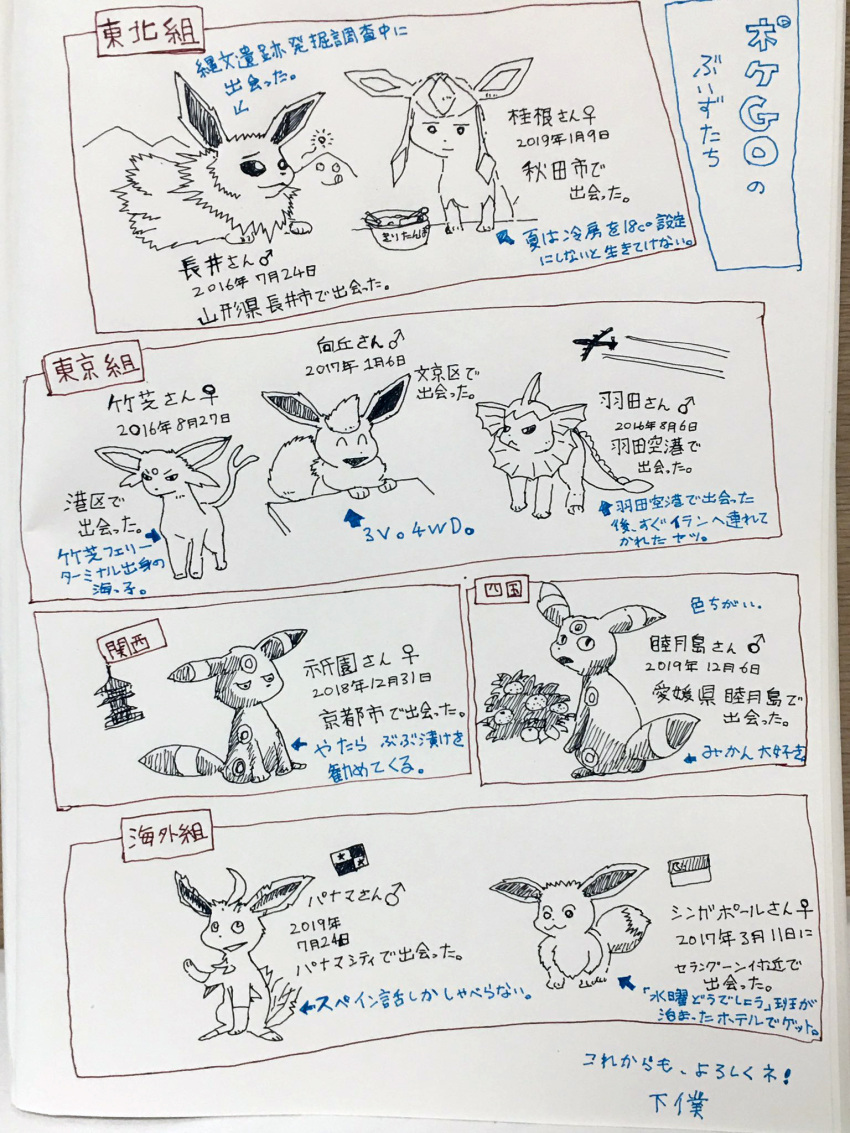 ポケGOの
ぶいずたち
東北組
縄文遺跡発掘調査中に
出会った。
長井さん♂
2016年7月24日
山形県長井市で出会った。
桂根さん♀
2019年1月9日
秋田市で
出会った。
きりたんぽ
夏は冷房を18℃設定
にしないと生きてけない。
東京組
竹芝さん♀
2016年8月27日
港区で
出会った。
竹芝フェリー
ターミナル出身の
海っ子。
向丘さん♂
2017年1月6日
文京区で
出会った。
3V。4WD。
羽田さん♂
2016年8月6日
羽田空港で
出会った。
羽田空港で出会った
後、すぐイランへ連れて
かれたヤツ。
関西
祇園さん♀
2018年12月31日
京都市で出会った。
やたらぶぶ漬けを
勧めてくる。
四国
色ちがい。
睦月島さん♂
2019年12月6日
愛媛県睦月島で
出会った。
みかん大好き。
海外組
パナマさん♂
2019年
7月24日
パナマシティで出会った。
スペイン語しかしゃべらない。
シンガポールさん♀
2017年3月11日に
セラングーン付近で
出会った。
「水曜どうでしょう」班が
泊まったホテルでゲット。
これからも、よろしくネ!
下僕